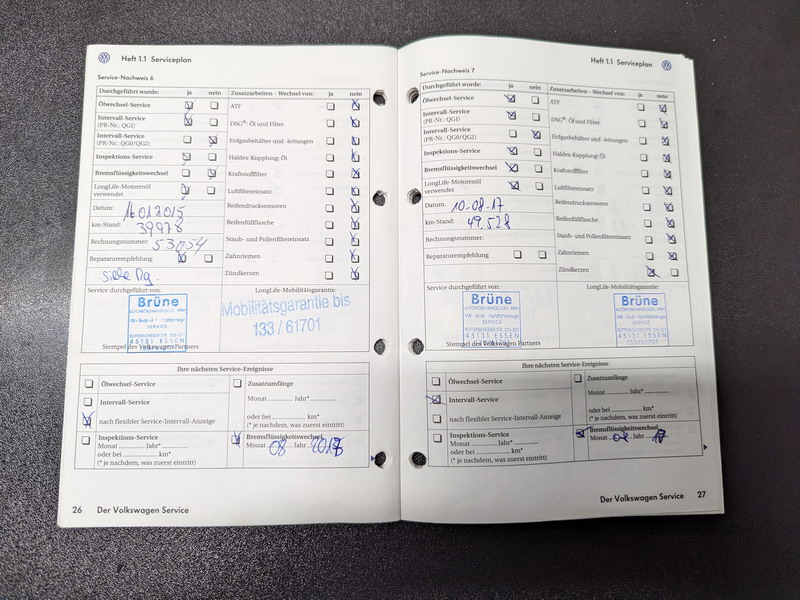 Heft 1.1 Serviceplan
Service-Nachweis 6
Durchgeführt wurde: ja nein
Ölwechsel-Service
Intervall-Service
(PR-Nr.: QG1)
Intervall-Service
(PR-Nr.: QG0/QG2)
Inspektions-Service
Bremsflüssigkeitswechsel
LongLife-Motorenöl
verwendet
Datum: 16.01.2015
km-Stand: 39978
Rechnungsnummer: 53054
Reparaturempfehlung
siehe Rg.
Zusatzarbeiten - Wechsel von: ja nein
ATF
DSG®: Öl und Filter
Erdgasbehälter und -leitungen
Haldex-Kupplung: Öl
Kraftstofffilter
Luftfiltereinsatz
Reifendrucksensoren
Reifenfüllflasche
Staub- und Pollenfiltereinsatz
Zahnriemen
Zündkerzen
Service durchgeführt von:
Brüne
SERVICE
45131 ESSEN
Stempel des Volkswagen Partners
LongLife-Mobilitätsgarantie:
Mobilitätsgarantie bis
133 / 61701
Ihre nächsten Service-Ereignisse
Ölwechsel-Service
Intervall-Service
nach flexibler Service-Intervall-Anzeige
Inspektions-Service
Monat Jahr*
oder bei km*
(* je nachdem, was zuerst eintritt)
Zusatzumfänge
Monat Jahr*
oder bei km*
(* je nachdem, was zuerst eintritt)
Bremsflüssigkeitswechsel
Monat 08 Jahr
26 Der Volkswagen Service
Heft 1.1 Serviceplan
Service-Nachweis 7
Durchgeführt wurde: ja nein
Ölwechsel-Service
Intervall-Service
(PR-Nr.: QG1)
Intervall-Service
(PR-Nr.: QG0/QG2)
Inspektions-Service
Bremsflüssigkeitswechsel
LongLife-Motorenöl
verwendet
Datum: 10-08-17
km-Stand: 49.528
Rechnungsnummer:
Reparaturempfehlung
Zusatzarbeiten - Wechsel von: ja nein
ATF
DSG®: Öl und Filter
Erdgasbehälter und -leitungen
Haldex-Kupplung: Öl
Kraftstofffilter
Luftfiltereinsatz
Reifendrucksensoren
Reifenfüllflasche
Staub- und Pollenfiltereinsatz
Zahnriemen
Zündkerzen
Service durchgeführt von:
Brüne
SERVICE
45131 ESSEN
Stempel des Volkswagen Partners
LongLife-Mobilitätsgarantie:
Brüne
SERVICE
45131 ESSEN
133/61701
Ihre nächsten Service-Ereignisse
Ölwechsel-Service
Intervall-Service
nach flexibler Service-Intervall-Anzeige
Inspektions-Service
Monat Jahr*
oder bei km*
(* je nachdem, was zuerst eintritt)
Zusatzumfänge
Monat Jahr*
oder bei km*
(* je nachdem, was zuerst eintritt)
Bremsflüssigkeitswechsel
Monat Jahr
Der Volkswagen Service 27